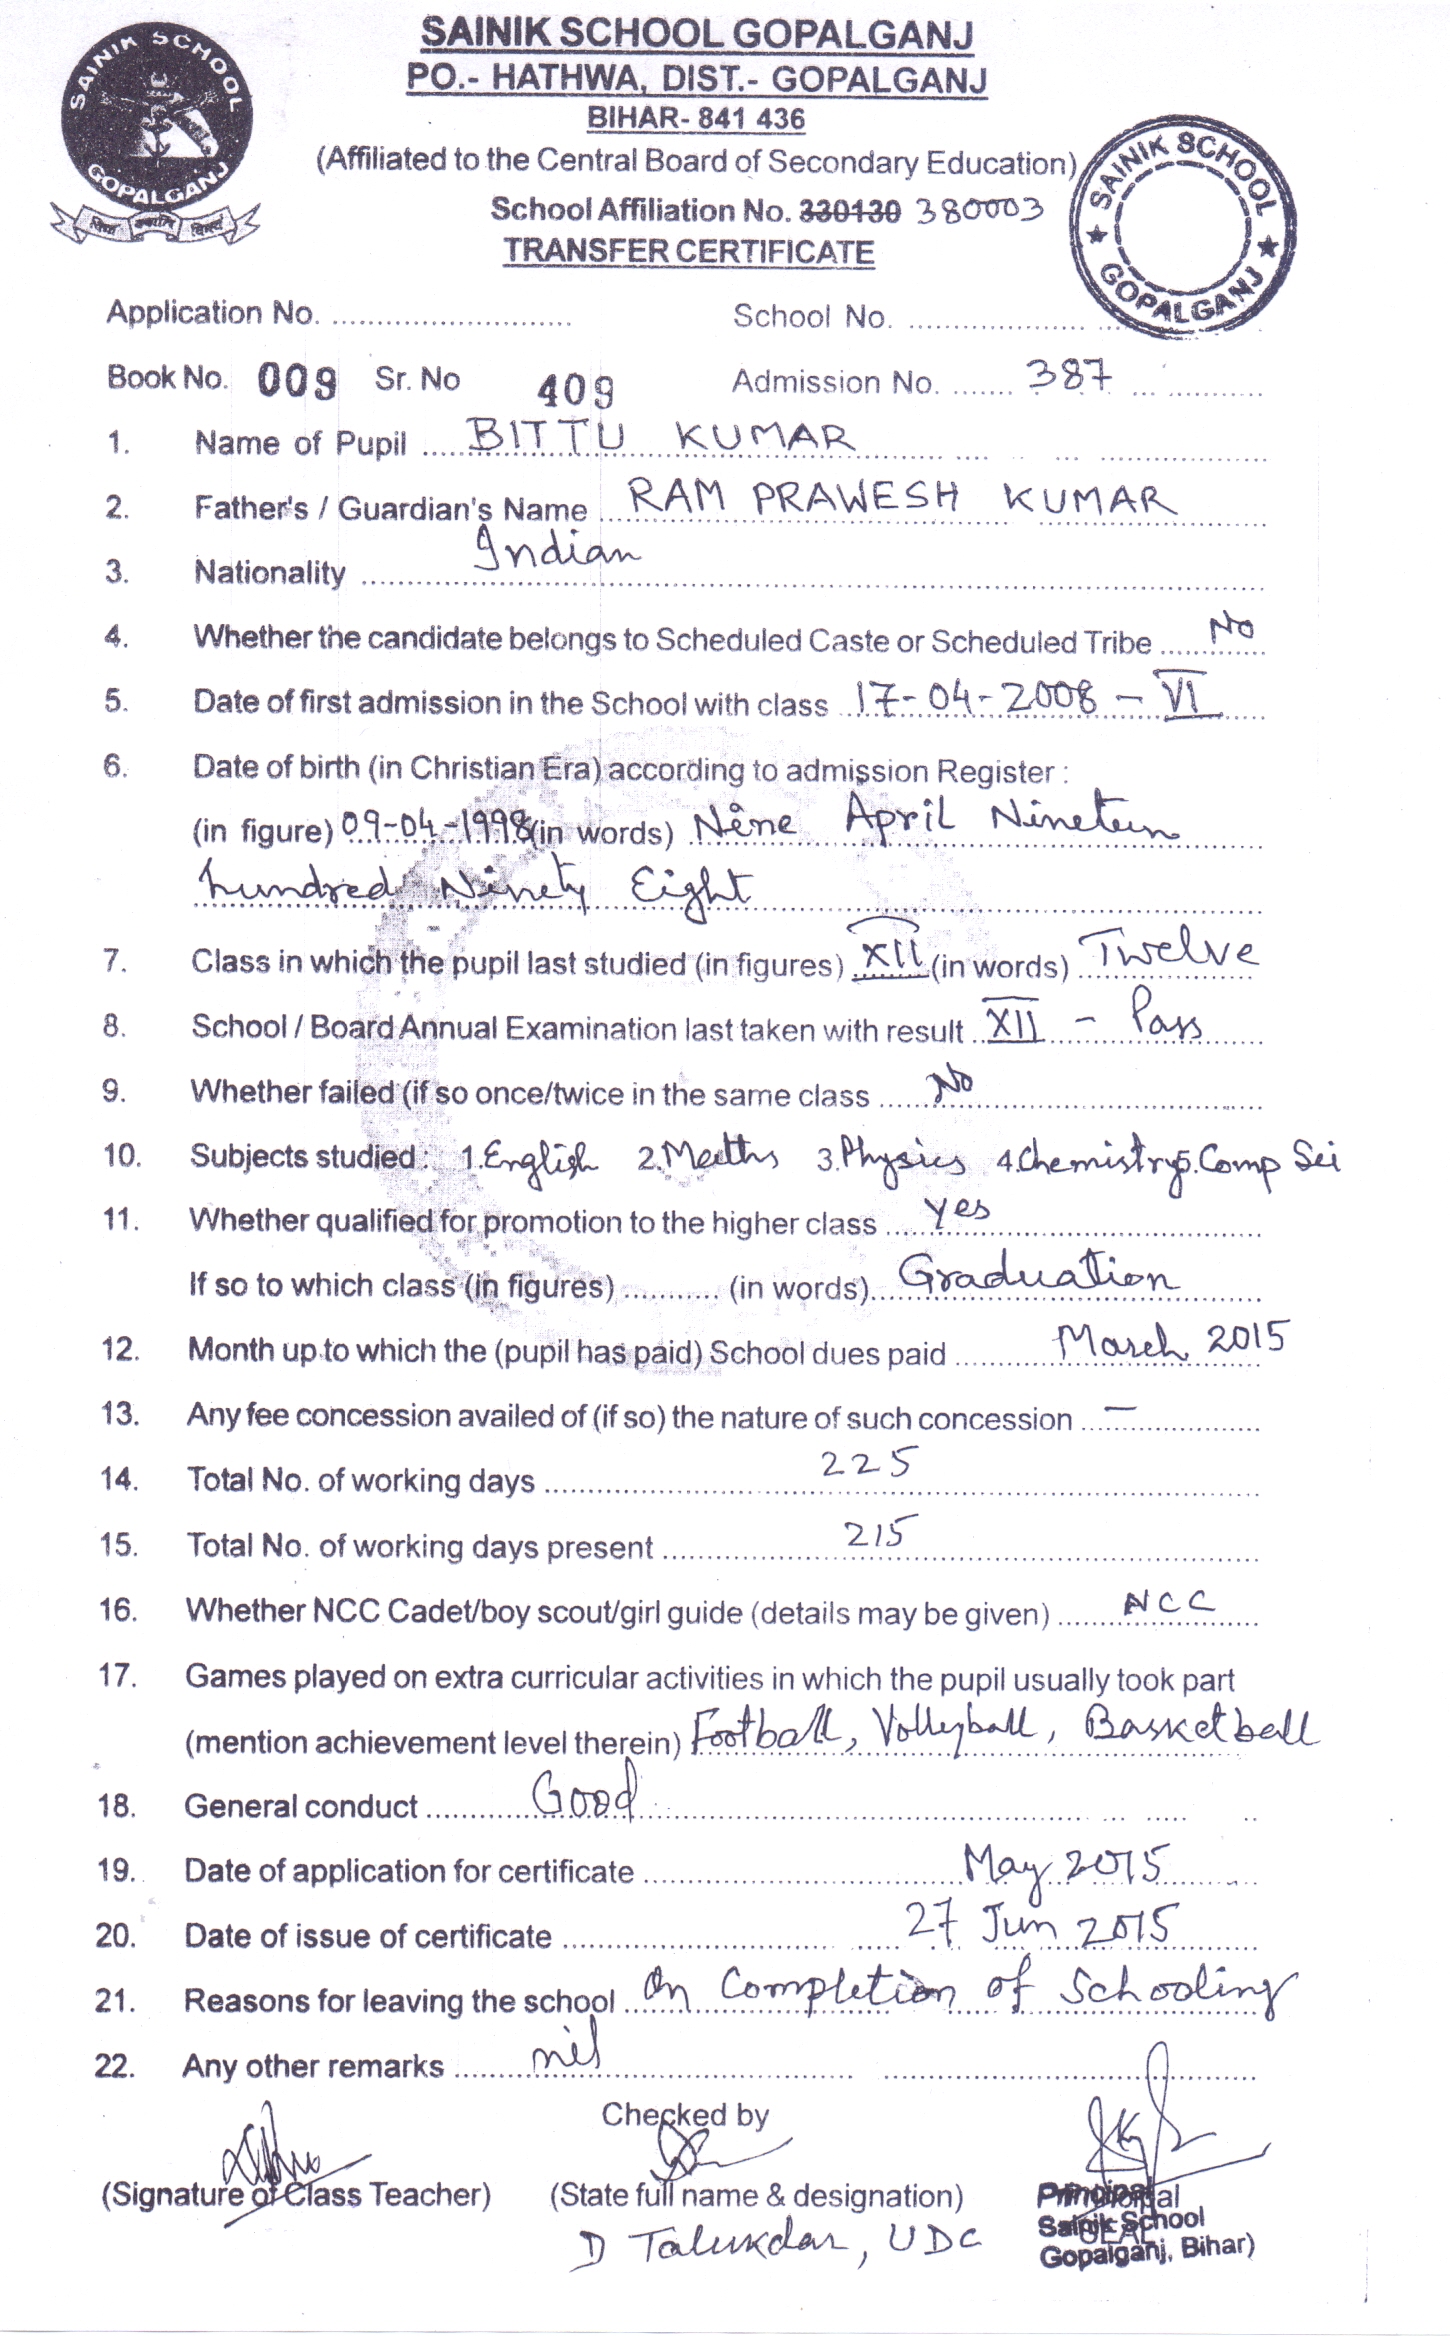 SAINIK SCHOOL GOPALGANJ
SAINIK SCHOOL GOPALGANJ
PO.- HATHWA, DIST.- GOPALGANJ
BIHAR- 841 436
(Affiliated to the Central Board of Secondary Education)
School Affiliation No. 330130 380003
TRANSFER CERTIFICATE
SAINIK SCHOOL ★ GOPALGANJ ★
Application No. ............ School No. ............
Book No. 009 Sr. No 409 Admission No. 387
1. Name of Pupil BITTU KUMAR
2. Father's / Guardian's Name RAM PRAWESH KUMAR
3. Nationality Indian
4. Whether the candidate belongs to Scheduled Caste or Scheduled Tribe No
5. Date of first admission in the School with class 17-04-2008 - VI
6. Date of birth (in Christian Era) according to admission Register :
(in figure) 09-04-1998 (in words) Nine April Nineteen
hundred Ninety Eight
7. Class in which the pupil last studied (in figures) XII (in words) Twelve
8. School / Board Annual Examination last taken with result XII - Pass
9. Whether failed (if so once/twice in the same class No
10. Subjects studied : 1.English 2.Maths 3.Physics 4.Chemistry 5.Comp Sci
11. Whether qualified for promotion to the higher class yes
If so to which class (in figures) ........... (in words) Graduation
12. Month up to which the (pupil has paid) School dues paid March 2015
13. Any fee concession availed of (if so) the nature of such concession —
14. Total No. of working days 225
15. Total No. of working days present 215
16. Whether NCC Cadet/boy scout/girl guide (details may be given) NCC
17. Games played on extra curricular activities in which the pupil usually took part
(mention achievement level therein) Football, Volleyball, Basketball
18. General conduct Good
19. Date of application for certificate May 2015
20. Date of issue of certificate 27 Jun 2015
21. Reasons for leaving the school On Completion of Schooling
22. Any other remarks nil
Checked by
(Signature of Class Teacher) (State full name & designation) Principal
D Talukdar, UDC
Principal
Sainik School
SEAL
Gopalganj, Bihar)